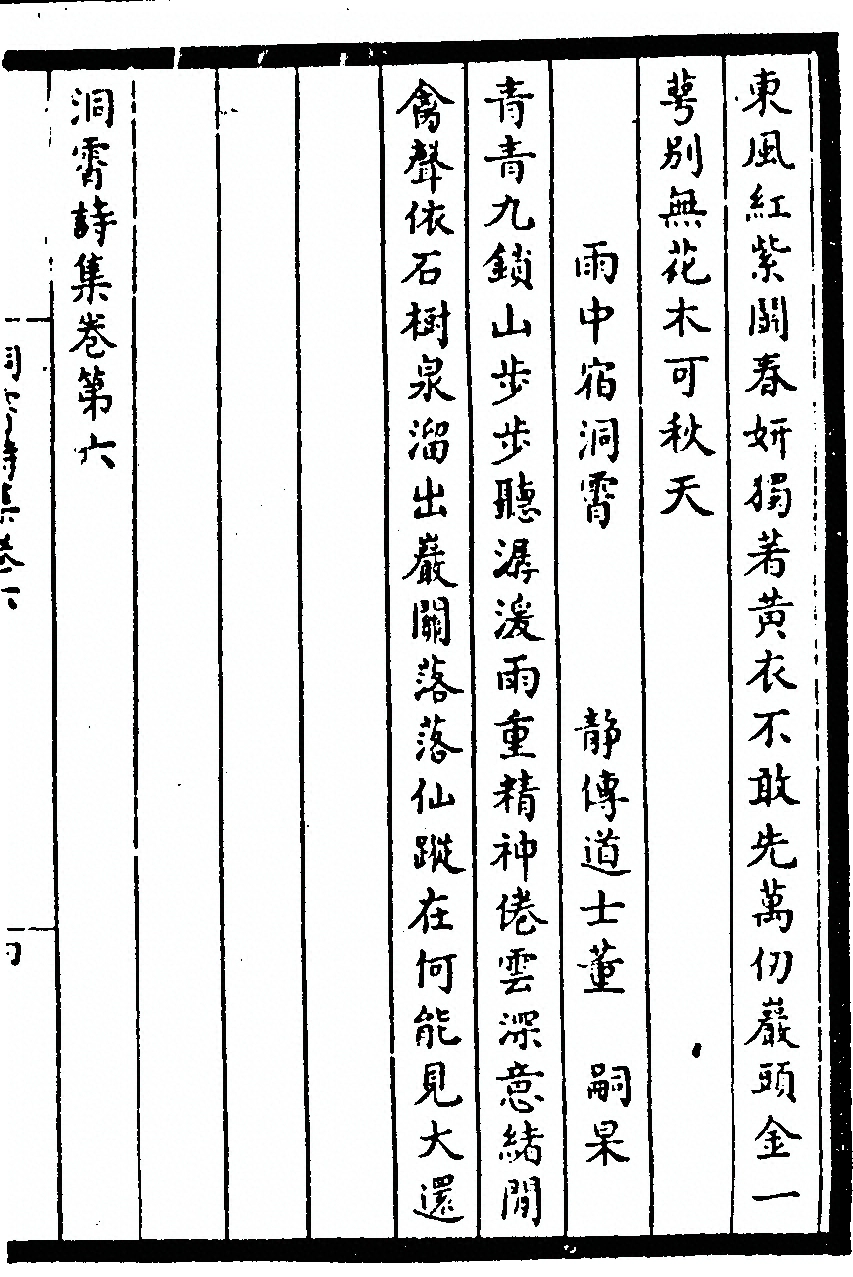 東風紅紫鬪春妍獨著黃衣不敢先萬仞巖頭金一
萼別無花木可秋天
雨中宿洞霄　靜傳道士董　嗣杲
青青九鎖山步步聽潺湲雨重精神倦雲深意緒閒
禽聲依石樹泉溜出巖關落落仙蹤在何能見大還
洞霄詩集卷第六